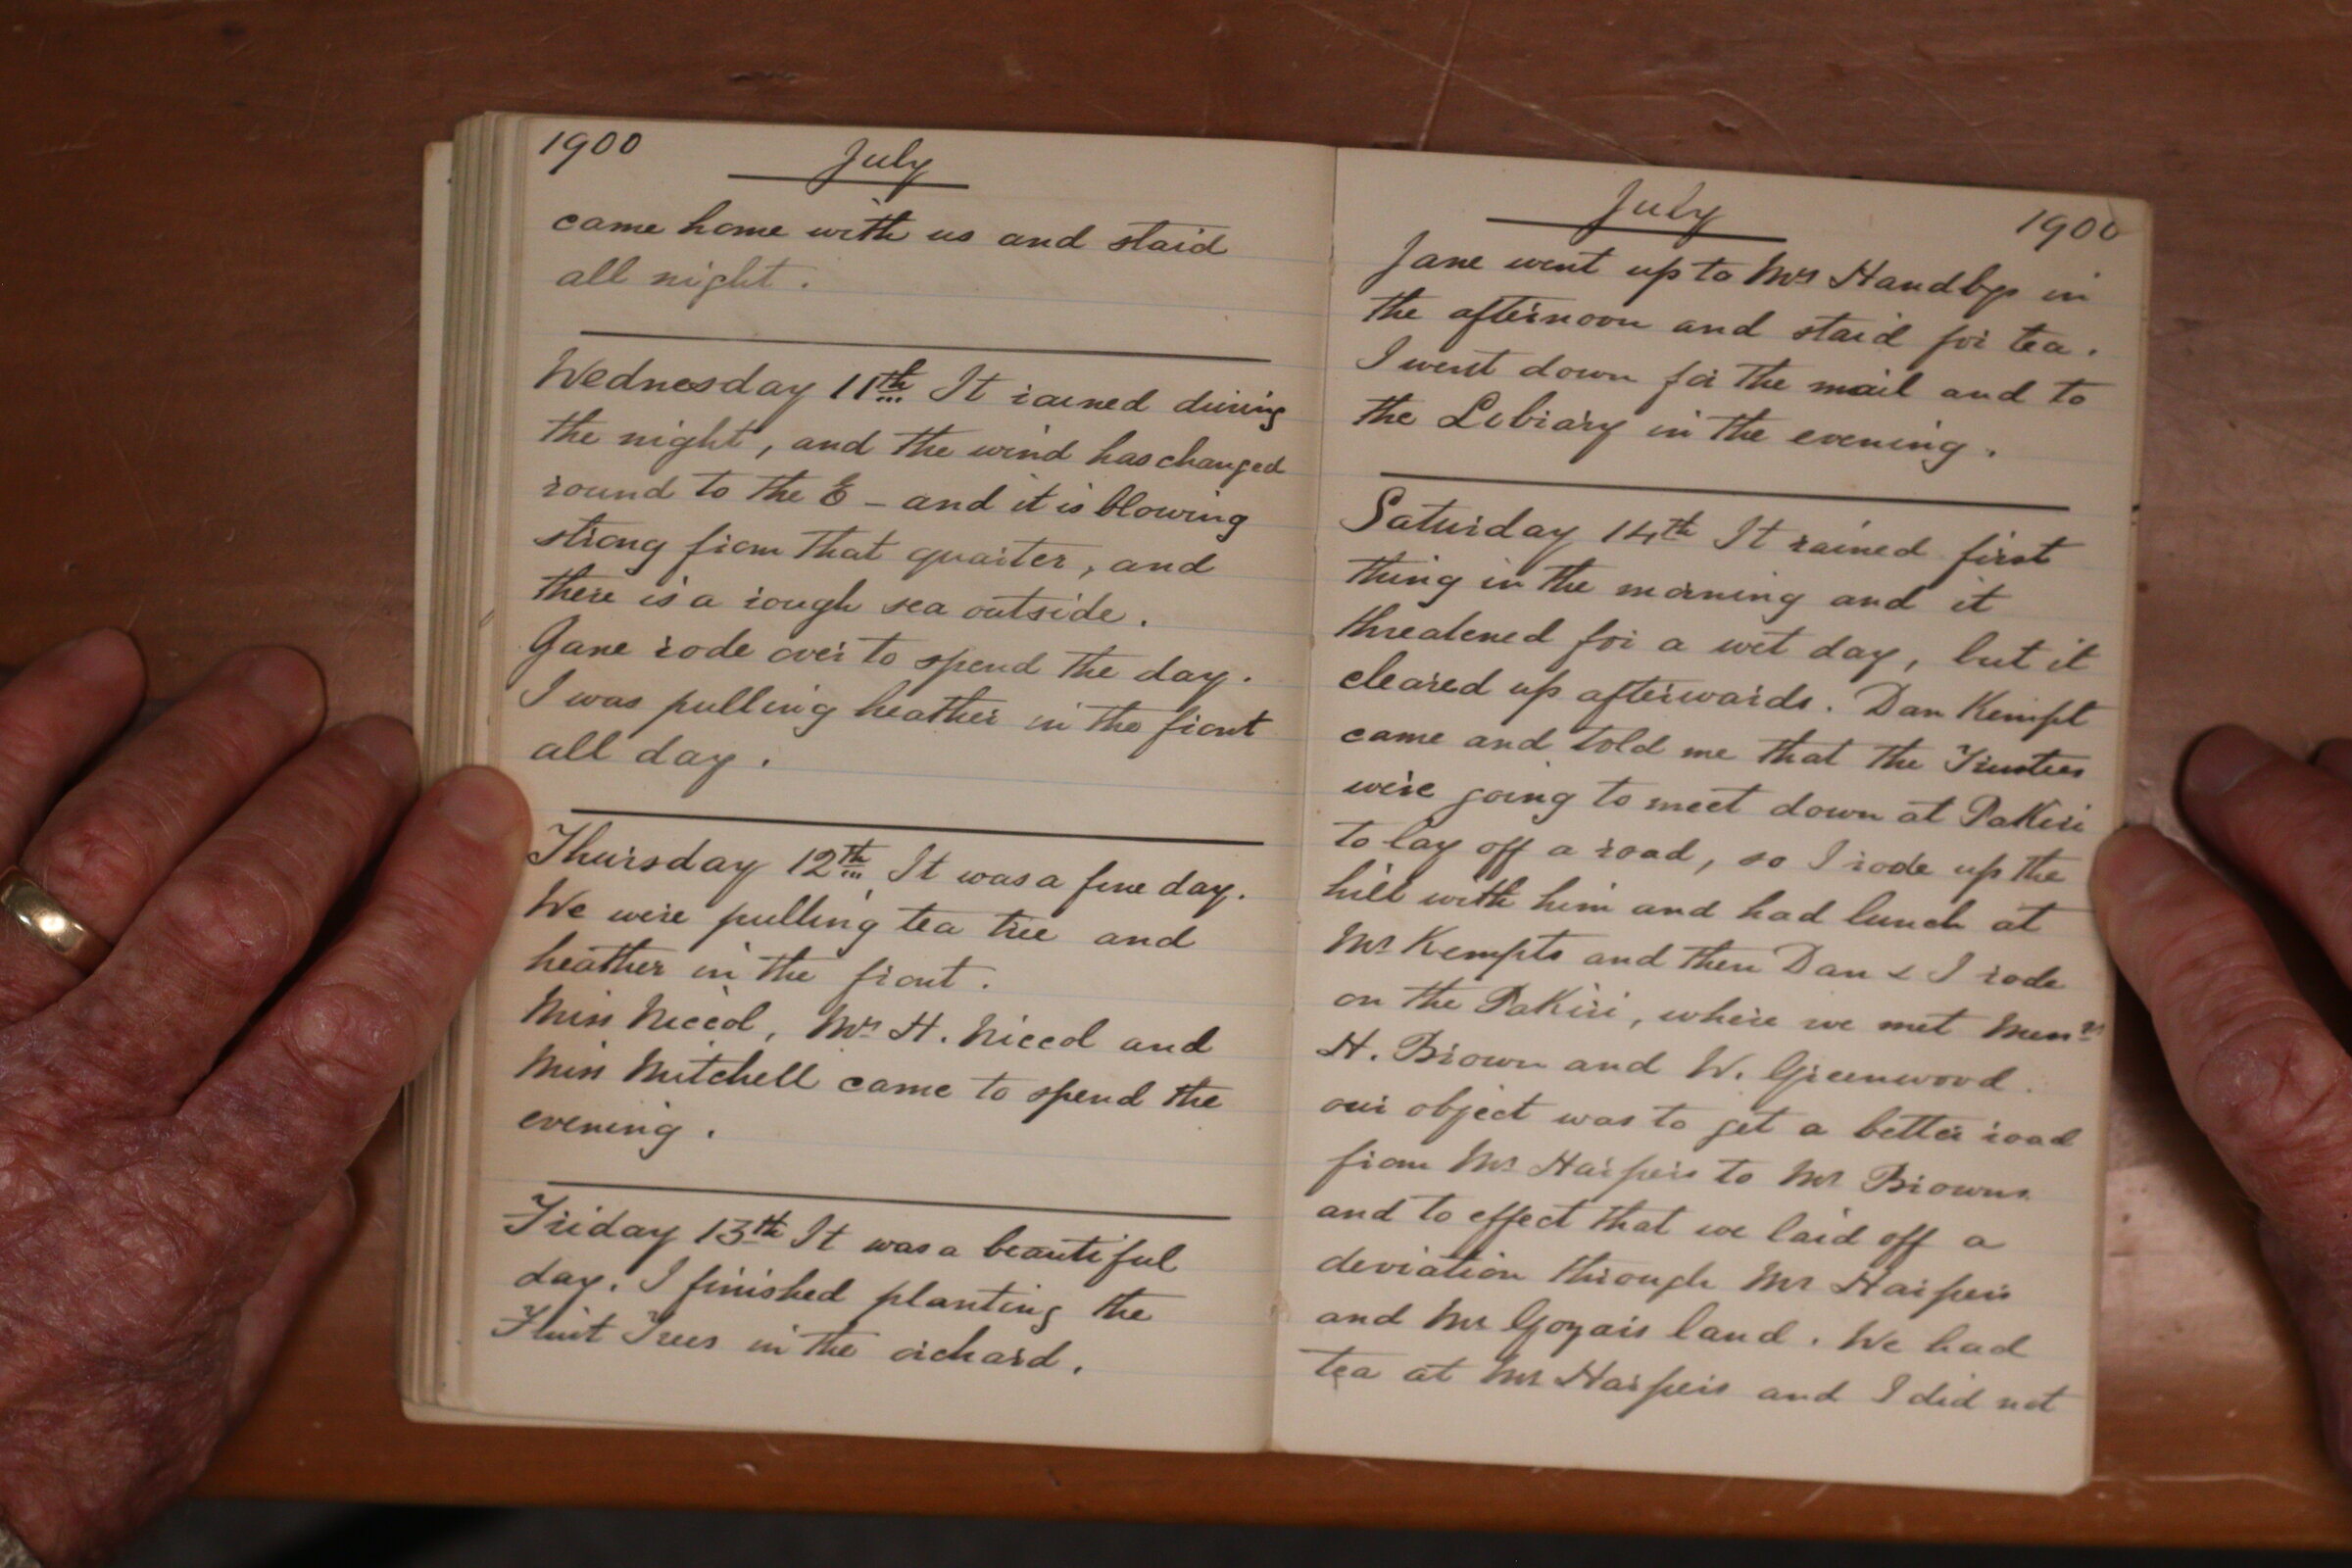 1900
July
came home with us and staid
all night.
Wednesday 11th It rained during
the night, and the wind has changed
round to the E - and it is blowing
strong from that quarter, and
there is a rough sea outside.
Jane rode over to spend the day.
I was pulling heather in the front
all day.
Thursday 12th. It was a fine day.
We were pulling tea tree and
heather in the front.
Miss Niccol, Mrs H. Niccol and
Miss Mitchell came to spend the
evening.
Friday 13th It was a beautiful
day. I finished planting the
Fruit Trees in the orchard.
July
1900
Jane went up to Mrs Handbys in
the afternoon and staid for tea.
I went down for the mail and to
the Library in the evening.
Saturday 14th It rained first
thing in the morning and it
threatened for a wet day, but it
cleared up afterwards. Dan Kempt
came and told me that the Trustees
were going to meet down at Pakiri
to lay off a road, so I rode up the
hill with him and had lunch at
Mr Kempts and then Dan & I rode
on the Pakiri, where we met Messrs
H. Brown and W. Greenwood.
our object was to get a better road
from Mr Harpers to Mr Browns
and to effect that we laid off a
deviation through Mr Harpers
and Mr Gozars land. We had
tea at Mr Harpers and I did not